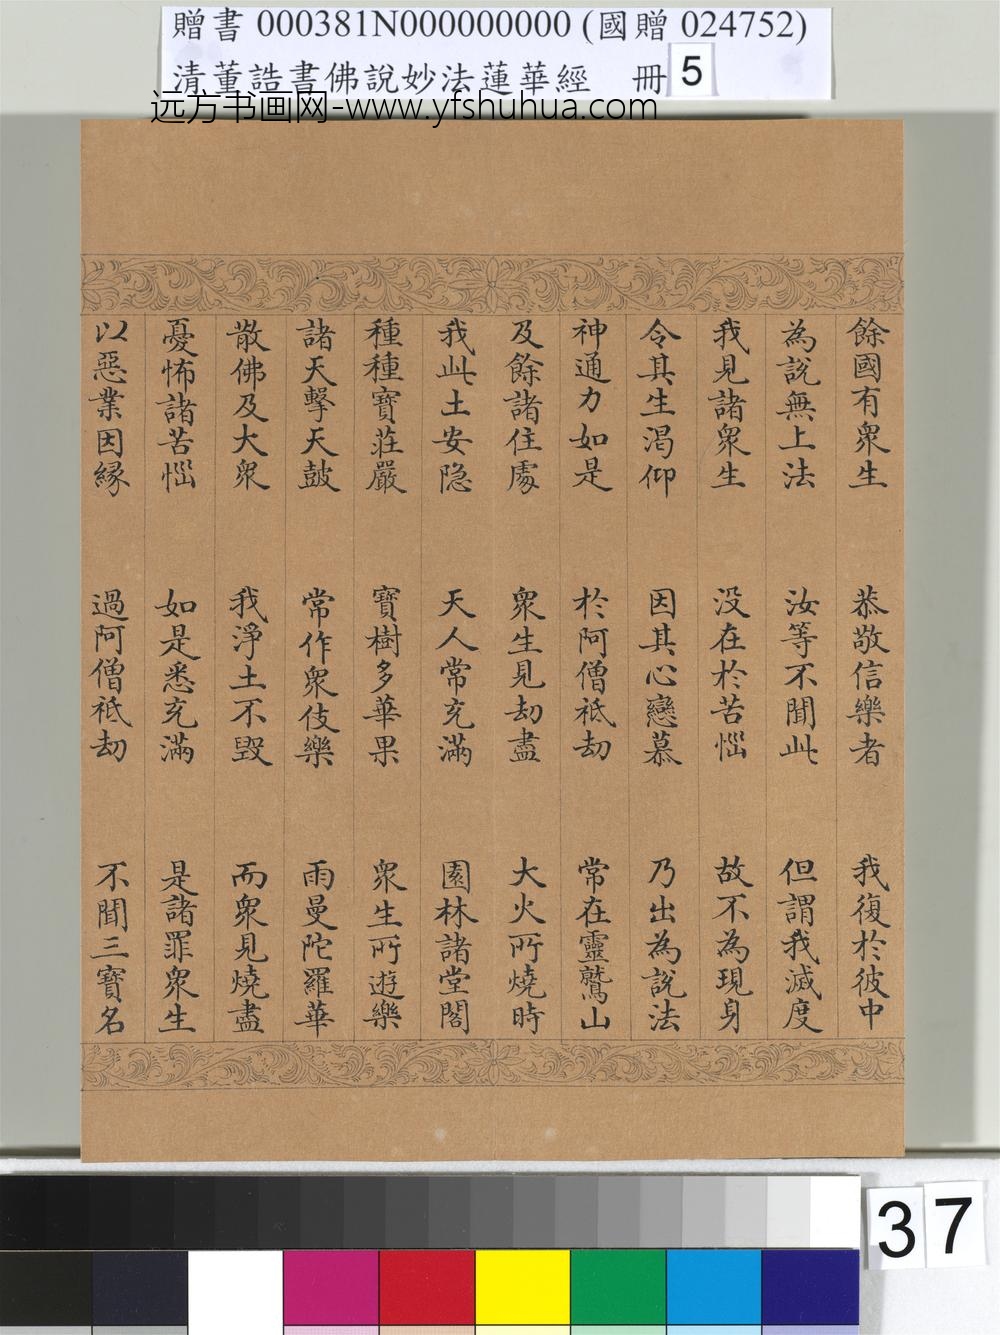 贈書 000381N000000000 (國贈 024752)
清董誥書佛說妙法蓮華經 冊 5
远方书画网-www.yfshuhua.com
餘國有衆生 恭敬信樂者 我復於彼中
為説無上法 汝等不聞此 但謂我滅度
我見諸衆生 没在於苦惱 故不為現身
令其生渴仰 因其心戀慕 乃出為説法
神通力如是 於阿僧祇劫 常在靈鷲山
及餘諸住處 衆生見劫盡 大火所燒時
我此土安隐 天人常充滿 園林諸堂閣
種種寶莊嚴 寶樹多華果 衆生所遊樂
諸天擊天鼓 常作衆伎樂 雨曼陀羅華
散佛及大衆 我淨土不毀 而衆見燒盡
憂怖諸苦惱 如是悉充滿 是諸罪衆生
以惡業因緣 過阿僧祇劫 不聞三寶名
37